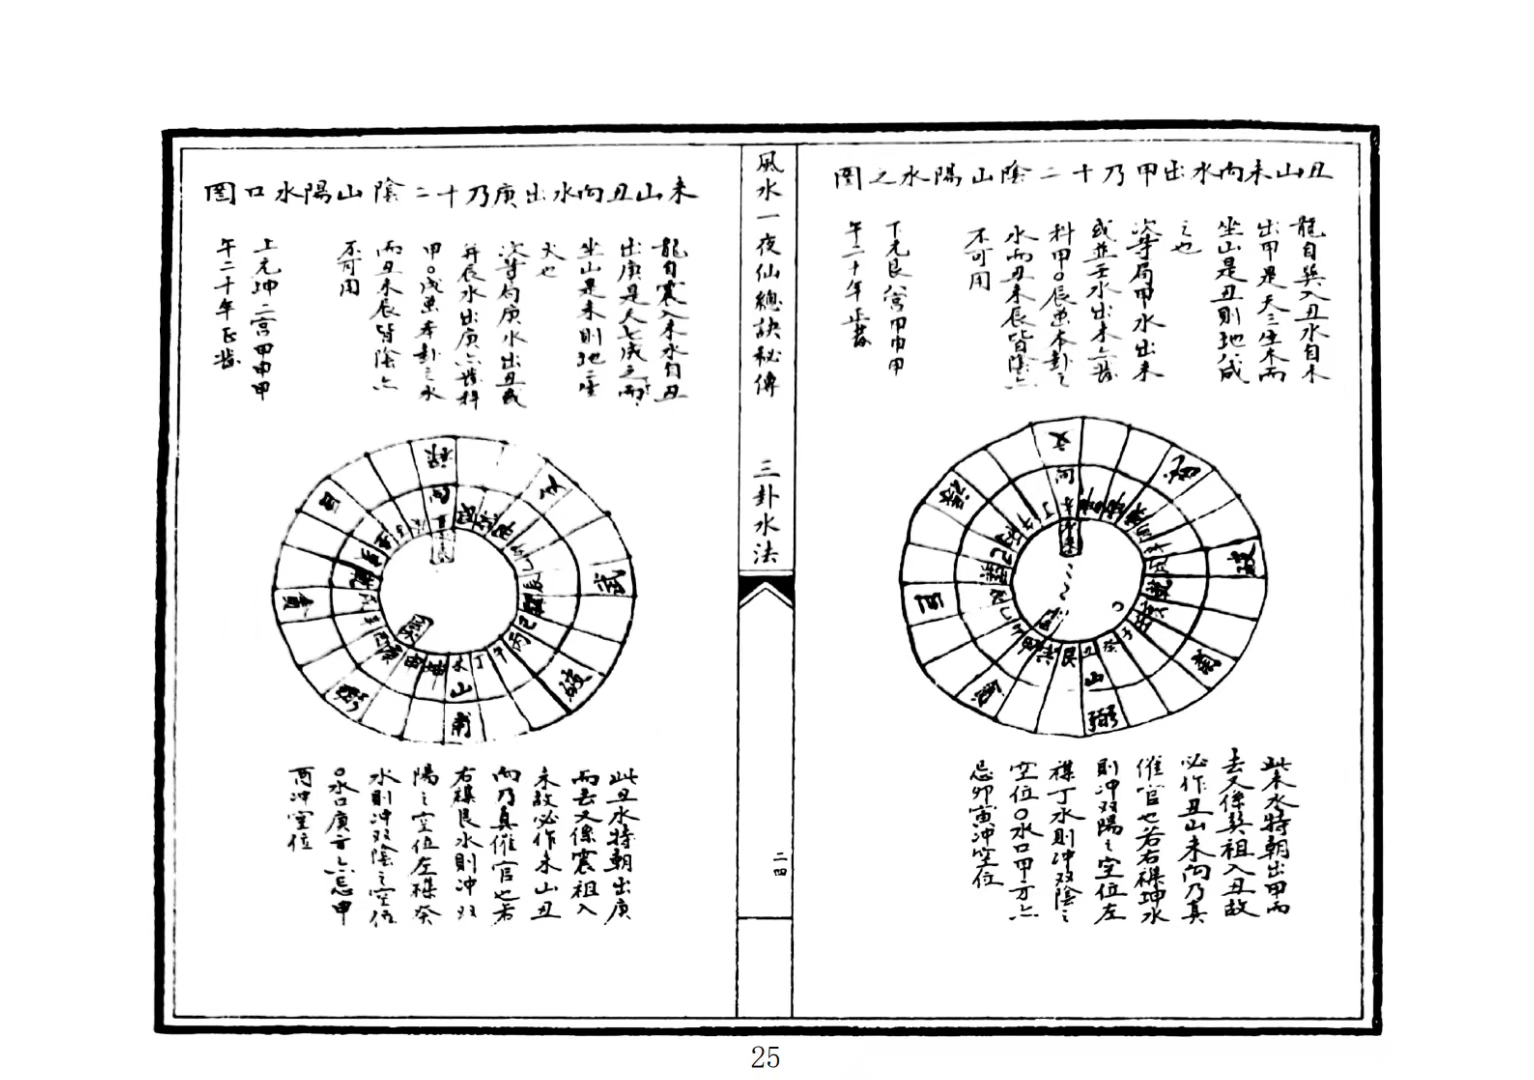 丑山未向水出甲乃十二陰山陽水之圖
龍自巽入丑水自未
出甲是天三生木而
坐山是丑則地八成
之也
次等局甲水出未
或並壬水出未亦發
科甲○辰並本卦之
水而丑未辰皆陰亦
不可用
下元艮八宮甲申甲
午二十年正發
文
破
武
祿
巨
貪
輔
弼
山
向
此未水特朝出甲而
去又係巽祖入丑故
必作丑山未向乃真
催官也若右襟坤水
則冲双陽之空位左
襟丁水則冲双陰之
空位○水口甲方亦
忌卯寅冲空位
風水一夜仙總訣秘傳
三卦水法
二四
未山丑向水出庚乃十二陰山陽水口圖
龍自震入未水自丑
出庚是天七成之而
坐山是未則地二生
火也
次等局庚水出丑或
並辰水出庚亦發科
甲○戌並本卦之水
而丑未辰皆陰亦
不可用
上元坤二宮甲申甲
午二十年正發
祿
文
武
破
輔
弼
貪
巨
山
向
此丑水特朝出庚
而去又係震祖入
未故必作未山丑
向乃真催官也若
右襟艮水則冲双
陽之空位左襟癸
水則冲双陰之空位
○水口庚方亦忌申
酉冲空位
25